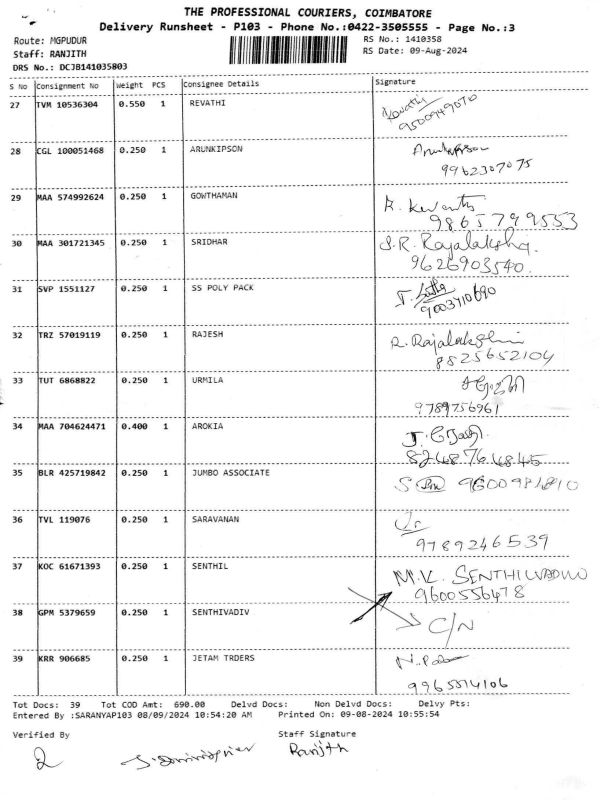 THE PROFESSIONAL COURIERS, COIMBATORE
Delivery Runsheet - P103 - Phone No.:0422-3505555 - Page No.:3
Route: MGPUDUR RS No.: 1410358
Staff: RANJITH RS Date: 09-Aug-2024
DRS No.: DCJB141035803
S No Consignment No Weight PCS Consignee Details Signature
27 TVM 10536304 0.550 1 REVATHI Revathi
9500949070
28 CGL 100051468 0.250 1 ARUNKIPSON
9962307075
29 MAA 574992624 0.250 1 GOWTHAMAN
9865799553
30 MAA 301721345 0.250 1 SRIDHAR S.R. Rajalakshy.
9626903540.
31 SVP 1551127 0.250 1 SS POLY PACK
9003410690
32 TRZ 57019119 0.250 1 RAJESH R. Rajalakshmi
8825652104
33 TUT 6868822 0.250 1 URMILA
9789756961
34 MAA 704624471 0.400 1 AROKIA
8248764845
35 BLR 425719842 0.250 1 JUMBO ASSOCIATE
36 TVL 119076 0.250 1 SARAVANAN
9789246539
37 KOC 61671393 0.250 1 SENTHIL M.K. SENTHILVADIVU
9600556478
38 GPM 5379659 0.250 1 SENTHIVADIV C/N
39 KRR 906685 0.250 1 JETAM TRDERS
Tot Docs: 39 Tot COD Amt: 690.00 Delvd Docs: Non Delvd Docs: Delvy Pts:
Entered By :SARANYAP103 08/09/2024 10:54:20 AM Printed On: 09-08-2024 10:55:54
Verified By Staff Signature
Ranjith